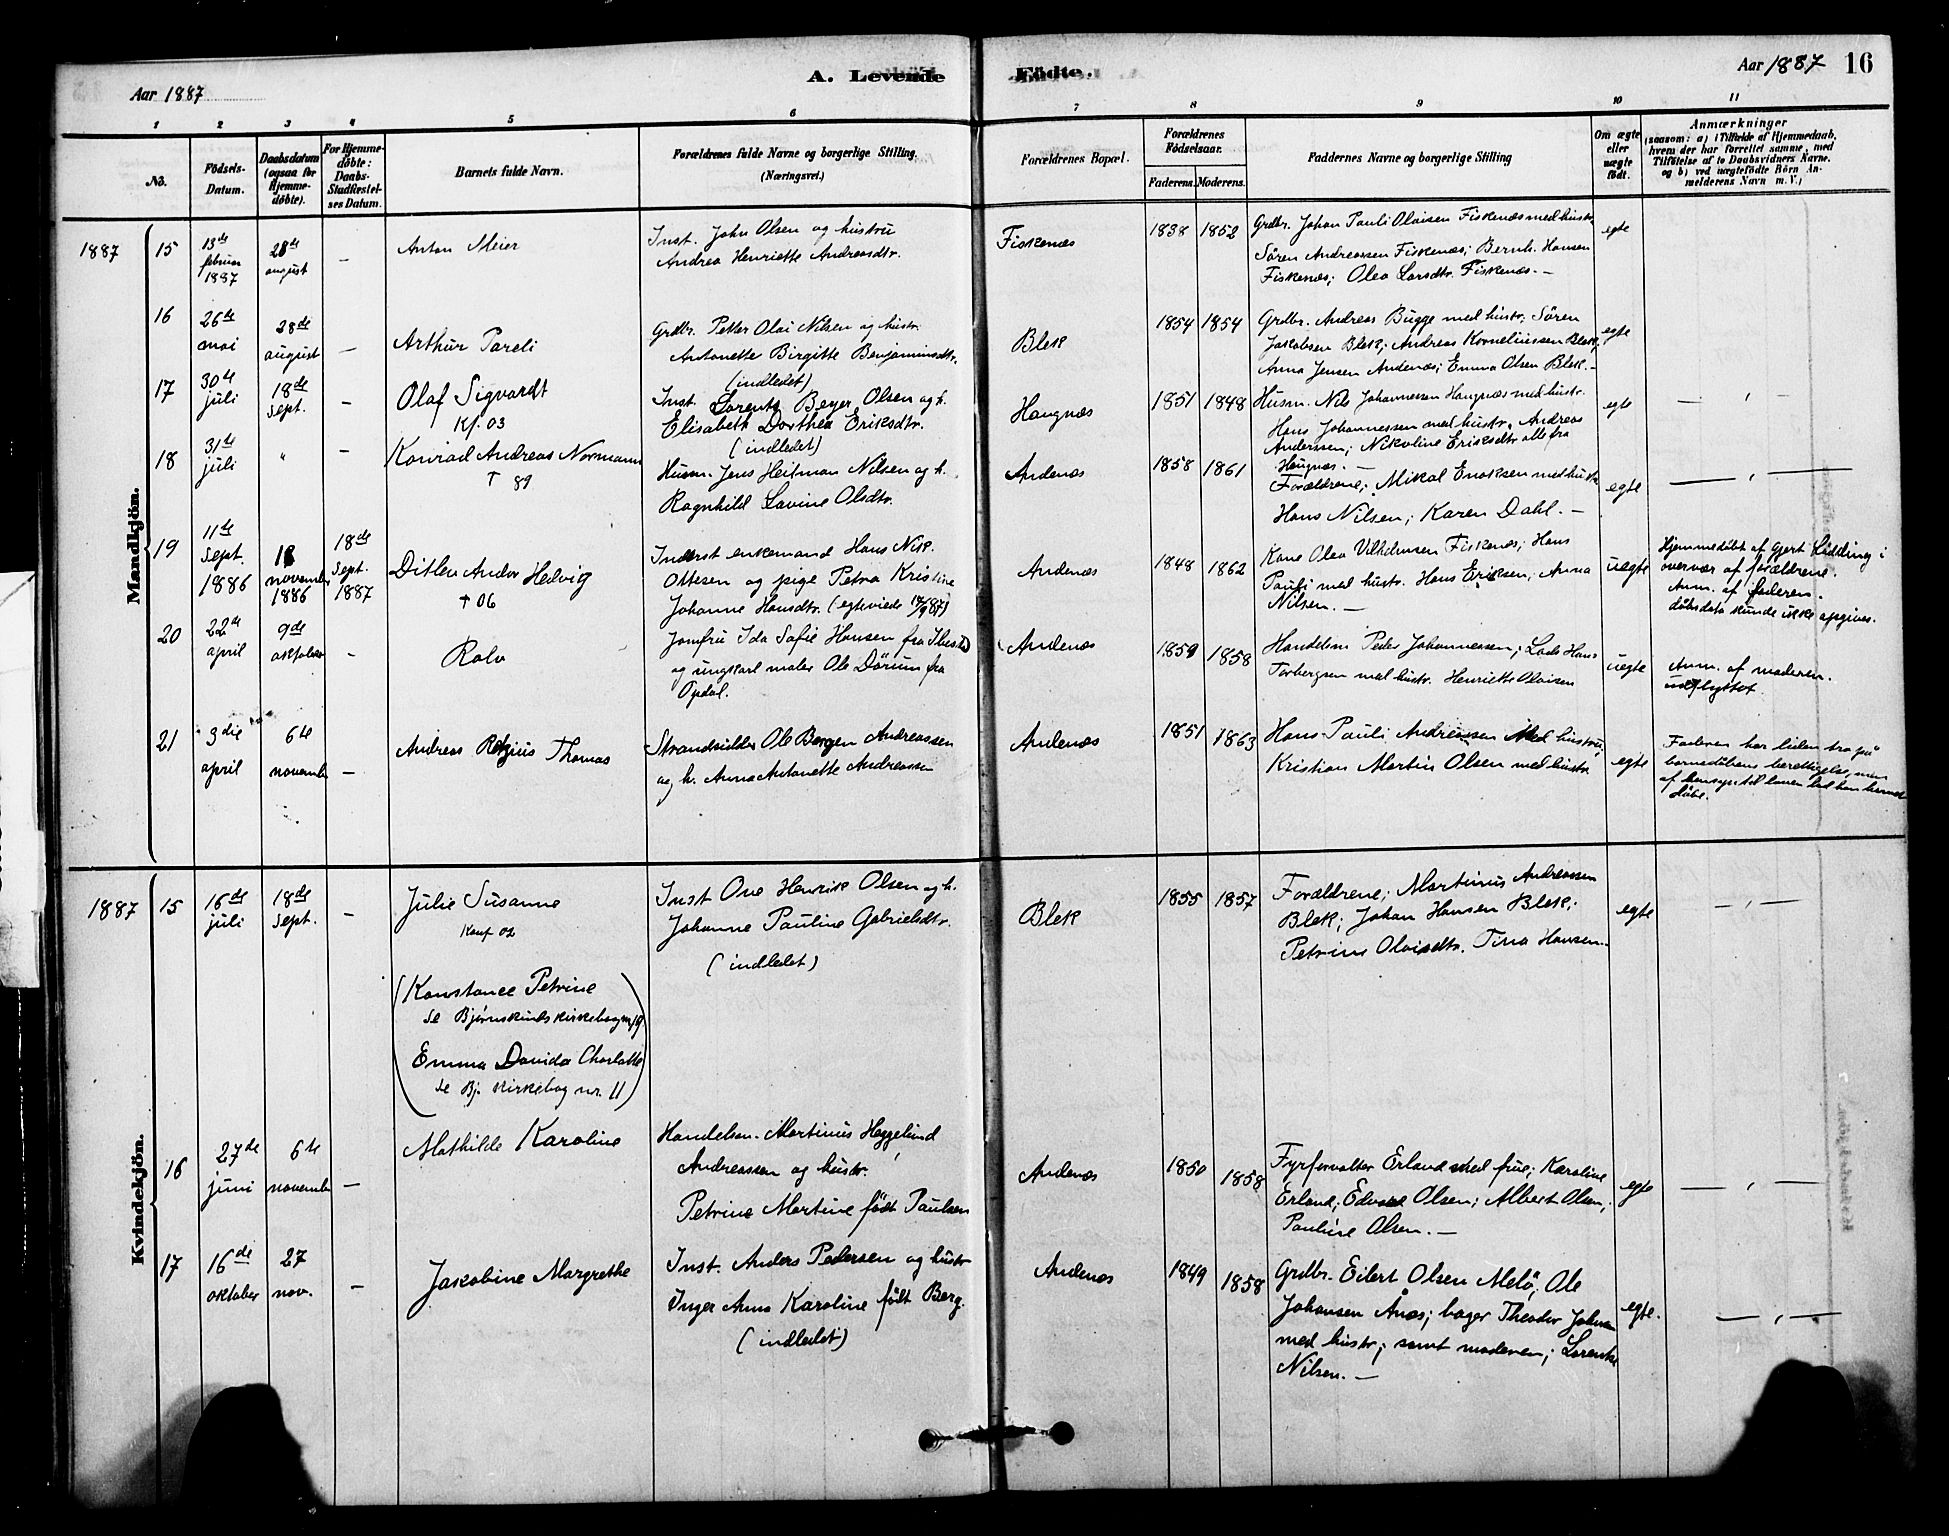 A. Levende Födte.
Aar 1887
Aar 1887 16
1 2 3 4 5 6 7 8 9 10 11
No.
Födsels-Datum.
Daabsdatum (ogsaa for Hjemmedöbte).
For Hjemmedöbte: Daabs-Stadfæstelses Datum.
Barnets fulde Navn.
Forældrenes fulde Navne og borgerlige Stilling. (Næringsvei.)
Forældrenes Bopæl.
Forældrenes Födselsaar.
Faderens. Moderens.
Faddernes Navne og borgerlige Stilling
Om ægte eller uægte födt.
Anmærkninger
(saasom: a) i Tilfælde af Hjemmedaab, hvem der har forrettet samme, med Tilföielse af to Daabsvidners Navne. og b) ved uægtefödte Börn Anmelderens Navn m. V.)
Mandkjön.
1887 15
13de februar 1887
28de august
—
Anton Meier
Inst. John Olsen og hustru
Andrea Henriette Andreasdtr.
Fiskenæs
1838 1852
Grdbr. Johan Pauli Olaisen Fiskenæs med hustr.
Sören Andreassen Fiskenæs; Bernh. Hansen
Fiskenæs; Olea Larsdtr. Fiskenæs. —
egte
16
26de mai
28de august
—
Arthur Pareli
Grdbr. Petter Olai Nilsen og hustr.
Antonette Birgitte Benjaminsdtr.
(indledet)
Blek
1854 1854
Grdbr. Andreas Bugge med hustr. Sören
Jakobsen Blek; Andreas Korneliussen Blek;
Anna Jensen Andenæs; Emma Olsen Blek. —
egte
17
30te juli
18de sept.
—
Olaf Sigvardt
Kf. 03
Inst. Lorents Beyer Olsen og h.
Elisabeth Dorthea Eriksdtr.
(indledet)
Haugnæs
1851 1848
Husm. Nils Johannessen Haugnæs med hustr.
Hans Johannessen med hustr. Andreas
Andersen; Nikoline Eriksdtr alle fra
Haugnæs. —
egte
— " —
18
31te juli
"
—
Konrad Andreas Normann
† 89
Husm. Jens Heitman Nilsen og h.
Ragnhild Lavine Olsdtr.
Andenæs
1858 1861
Forældrene; Mikal Enoksen med hustr.
Hans Nilsen; Karen Dahl. —
egte
— " —
19
11te sept. 1886
november 1886
18de sept. 1887
Ditlev Andor Hedvig
† 06
Inderst enkemand Hans Nik.
Ottesen og pige Petra Kristine
Johanne Hansdtr. (egteviede 18/9 87)
Andenæs
1848 1862
Kone Olea Vilhelmsen Fiskenæs; Hans
Pauli med hustr. Hans Eriksen; Anna
Nilsen. —
uegte
Hjemmedöbt af Gjert Lidding i
overvær af forældrene.
Anm. af faderen.
döbsdata kunde ikke opgives.
20
22de april
9de oktober
—
Rolv
Jomfru Ida Sofie Hansen fra
og ungkarl maler Ole Dörum fra
Opdal.
Andenæs
1859 1858
Handelsm Peder Johannessen; Lods Hans
Torbergsen med hustr. Henriette Olaisen
uegte
Anm. af moderen.
udflyttet
21
3die april
6te november
—
Andreas Retzius Thomas
Strandsidder Ole Borgen Andreassen
og h. Anna Antonette Andreassen
Andenæs
1851 1863
Hans Pauli Andreassen med hustru,
Kristian Martin Olsen med hustr.
egte
Faderen har liden tro på
barnedåbens berettigelse, men
af hensyn til loven lod han barnet
döbe.
Kvindekjön.
1887 15
16de juli
18de sept.
—
Julie Susanne
Konf 02
Inst Ove Henrik Olsen og h.
Johanne Pauline Gabrielsdtr.
(indledet)
Blek
1855 1857
Forældrene; Martinus Andreassen
Blek; Johan Hansen Blek;
Petrine Olaisdtr. Tina Hansen.
egte
— " —
(Konstance Petrine
se Bjørnskinds kirkebog nr 19
Emma Davida Charlotte
se Bj. kirkebog nr. 11)
16
27de juni
6te november
—
Mathilde Karoline
Handelsm. Martinus Heggelund
Andreassen og hustr.
Petrine Martine född Paulsen
Andenæs
1850 1858
Fyrforvalter Erland med frue; Karoline
Erland; Edvard Olsen; Albert Olsen;
Pauline Olsen. —
egte
— " —
17
16de oktober
27 nov.
—
Jakobine Margrethe
Inst. Anders Pedersen og hustr
Inger Anna Karoline född Berg.
(indledet)
Andenæs
1849 1858
Grdbr. Eilert Olsen Melö; Ole
Johansen Ånæs; bager Theodor Johnsen
med hustr; samt moderen; Lorentse
Nilsen. —
egte.
— " —